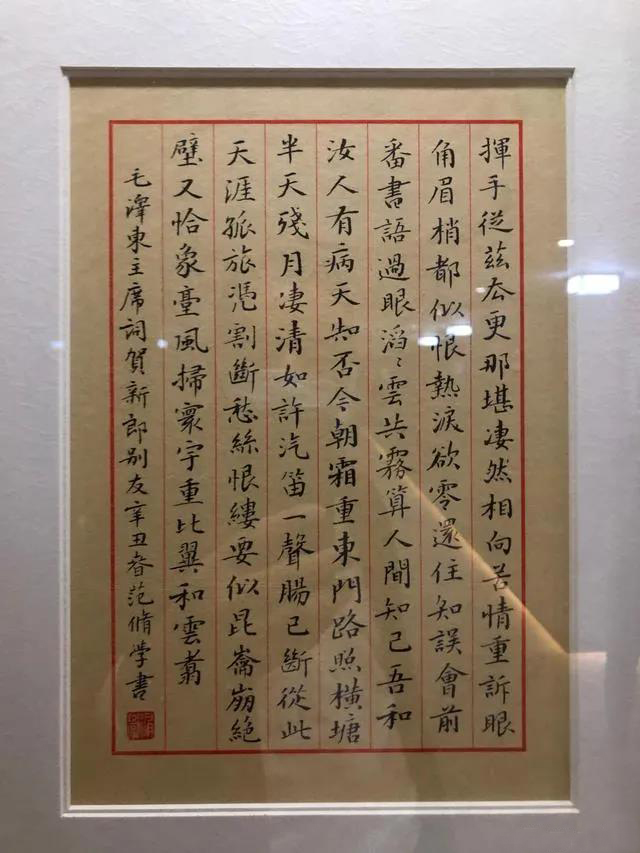 揮手從茲去更那堪凄然相向苦情重訴眼
角眉梢都似恨熱淚欲零還住知誤會前
番書語過眼滔〻雲共霧算人間知己吾和
汝人有病天知否今朝霜重東門路照橫塘
半天殘月凄清如許汽笛一聲腸已斷從此
天涯孤旅憑割斷愁絲恨縷要似昆崙崩絕
壁又恰象臺風掃寰宇重比翼和雲翥
毛澤東主席詞賀新郎别友辛丑春范脩学書